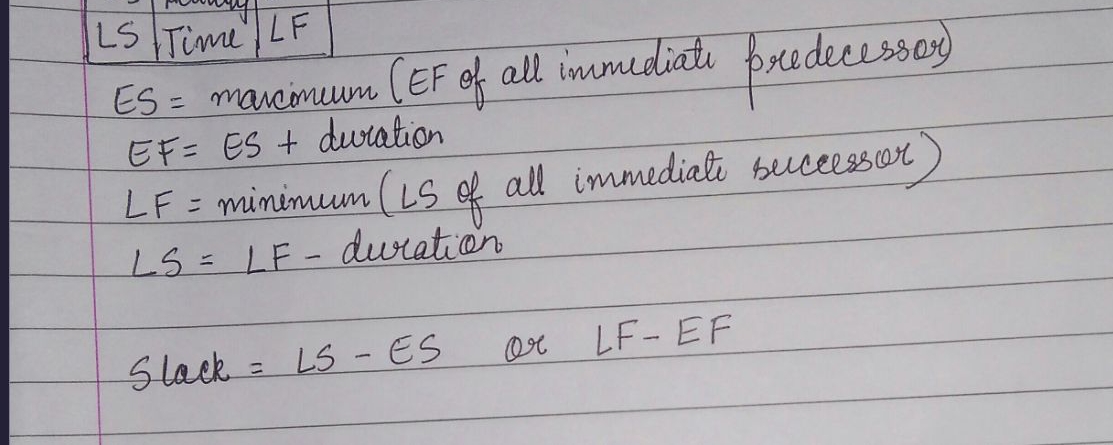 LS Time LF
ES = maximum (EF of all immediate predecessor)
EF = ES + duration
LF = minimum (LS of all immediate successor)
LS = LF - duration
Slack = LS - ES or LF - EF